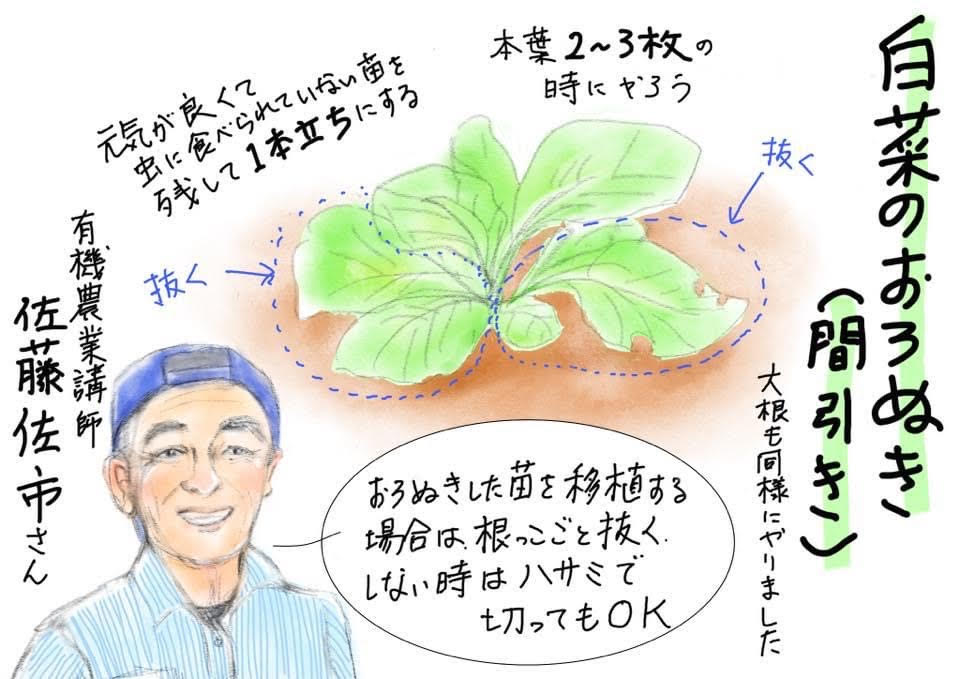 白菜のおろぬき
(間引き)
大根も同様にやりました
本葉2~3枚の
時にやろう
元気が良くて
虫に食べられていない苗を
残して1本立ちにする
抜く
抜く
有機農業講師
佐藤佐市さん
おろぬきした苗を移植する
場合は、根っこごと抜く.
しない時はハサミで
切ってもOK